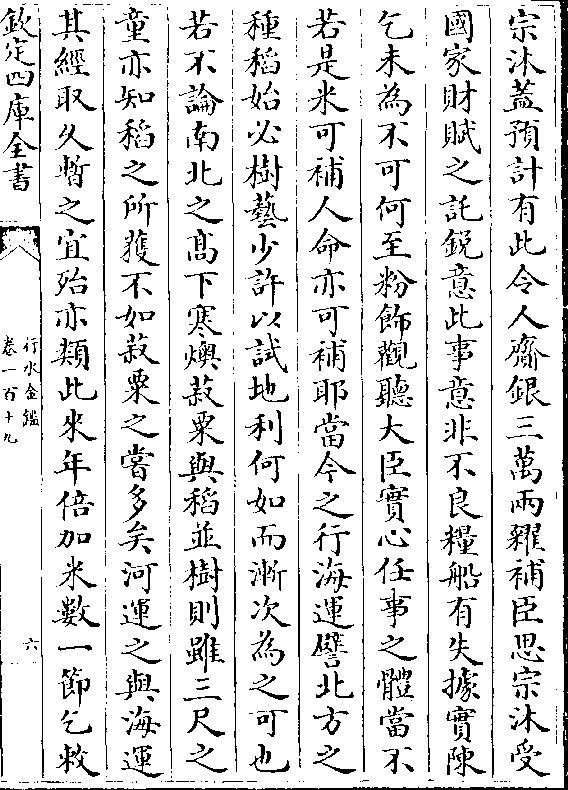 宗沐蓋預計有此令人齎銀三萬兩糴補臣思宗沐受
國家財賦之託鋭意此事意非不良糧船有失據實陳
乞未為不可何至粉飾觀聽大臣實心任事之體當不
若是米可補人命亦可補耶當今之行海運譬北方之
種稻始必樹藝少許以試地利何如而漸次為之可也
若不論南北之髙下寒燠菽粟與稻並樹則雖三尺之
童亦知稻之所獲不如菽粟之嘗多矣河運之與海運
其經取久暫之宜殆亦類此來年倍加米數一節乞敕
欽定四庫全書
行水金鑑
卷一百十九
六